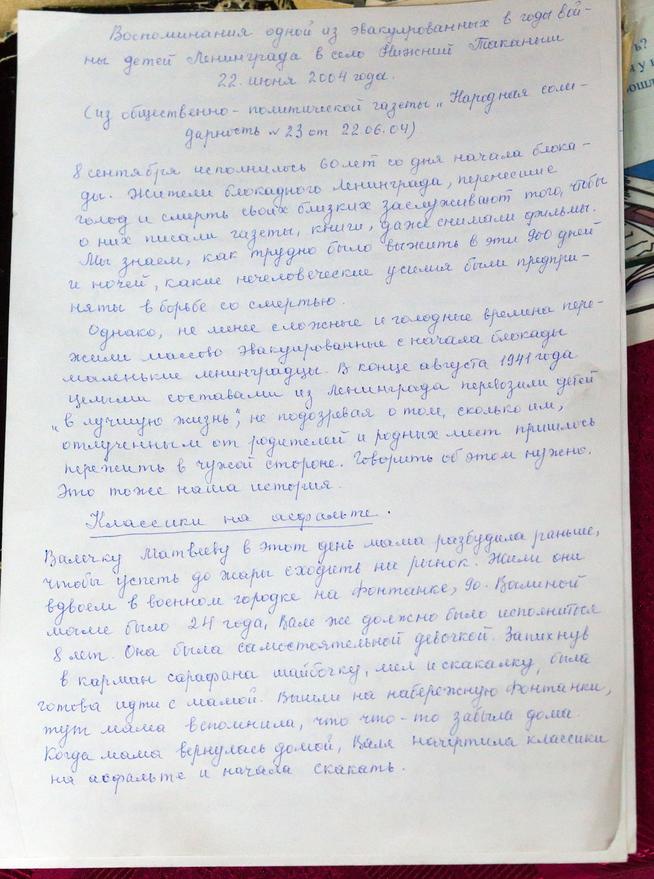 Воспоминания одной из эвакуированных в годы вой-
ны детей Ленинграда в село Нижний Таканыш
22 июня 2004 года.
(из общественно-политической газеты "Народная соли-
дарность №23 от 22.06.04)
8 сентября исполнилось 60 лет со дня начала блока-
ды. Жители блокадного Ленинграда, перенесшие
голод и смерть своих близких заслуживают того, чтобы
о них писали газеты, книги, даже снимали фильмы.
Мы знаем, как трудно было выжить в эти 900 дней
и ночей, какие нечеловеческие усилия были предпри-
няты в борьбе со смертью.
Однако, не менее сложные и голодные времена пере-
жили массово эвакуированные с начала блокады
маленькие ленинградцы. В конце августа 1941 года
целыми составами из Ленинграда перевозили детей
"в лучшую жизнь", не подозревая о том, сколько им,
отлученным от родителей и родных мест пришлось
пережить в чужой стороне. Говорить об этом нужно.
Это тоже наша история.
Классики на асфальте.
Валечку Матвееву в этот день мама разбудила раньше,
чтобы успеть до жары сходить на рынок. Жили они
вдвоем в военном городке на Фонтанке, 90. Валиной
маме было 24 года, Вале же должно было исполниться
8 лет. Она была самостоятельной девочкой. Запихнув
в карман сарафана шайбочку, мел и скакалку, была
готова идти с мамой. Вышли на набережную Фонтанки,
тут мама вспомнила, что что-то забыла дома.
Когда мама вернулась домой, Валя начертила классики
на асфальте и начала скакать.